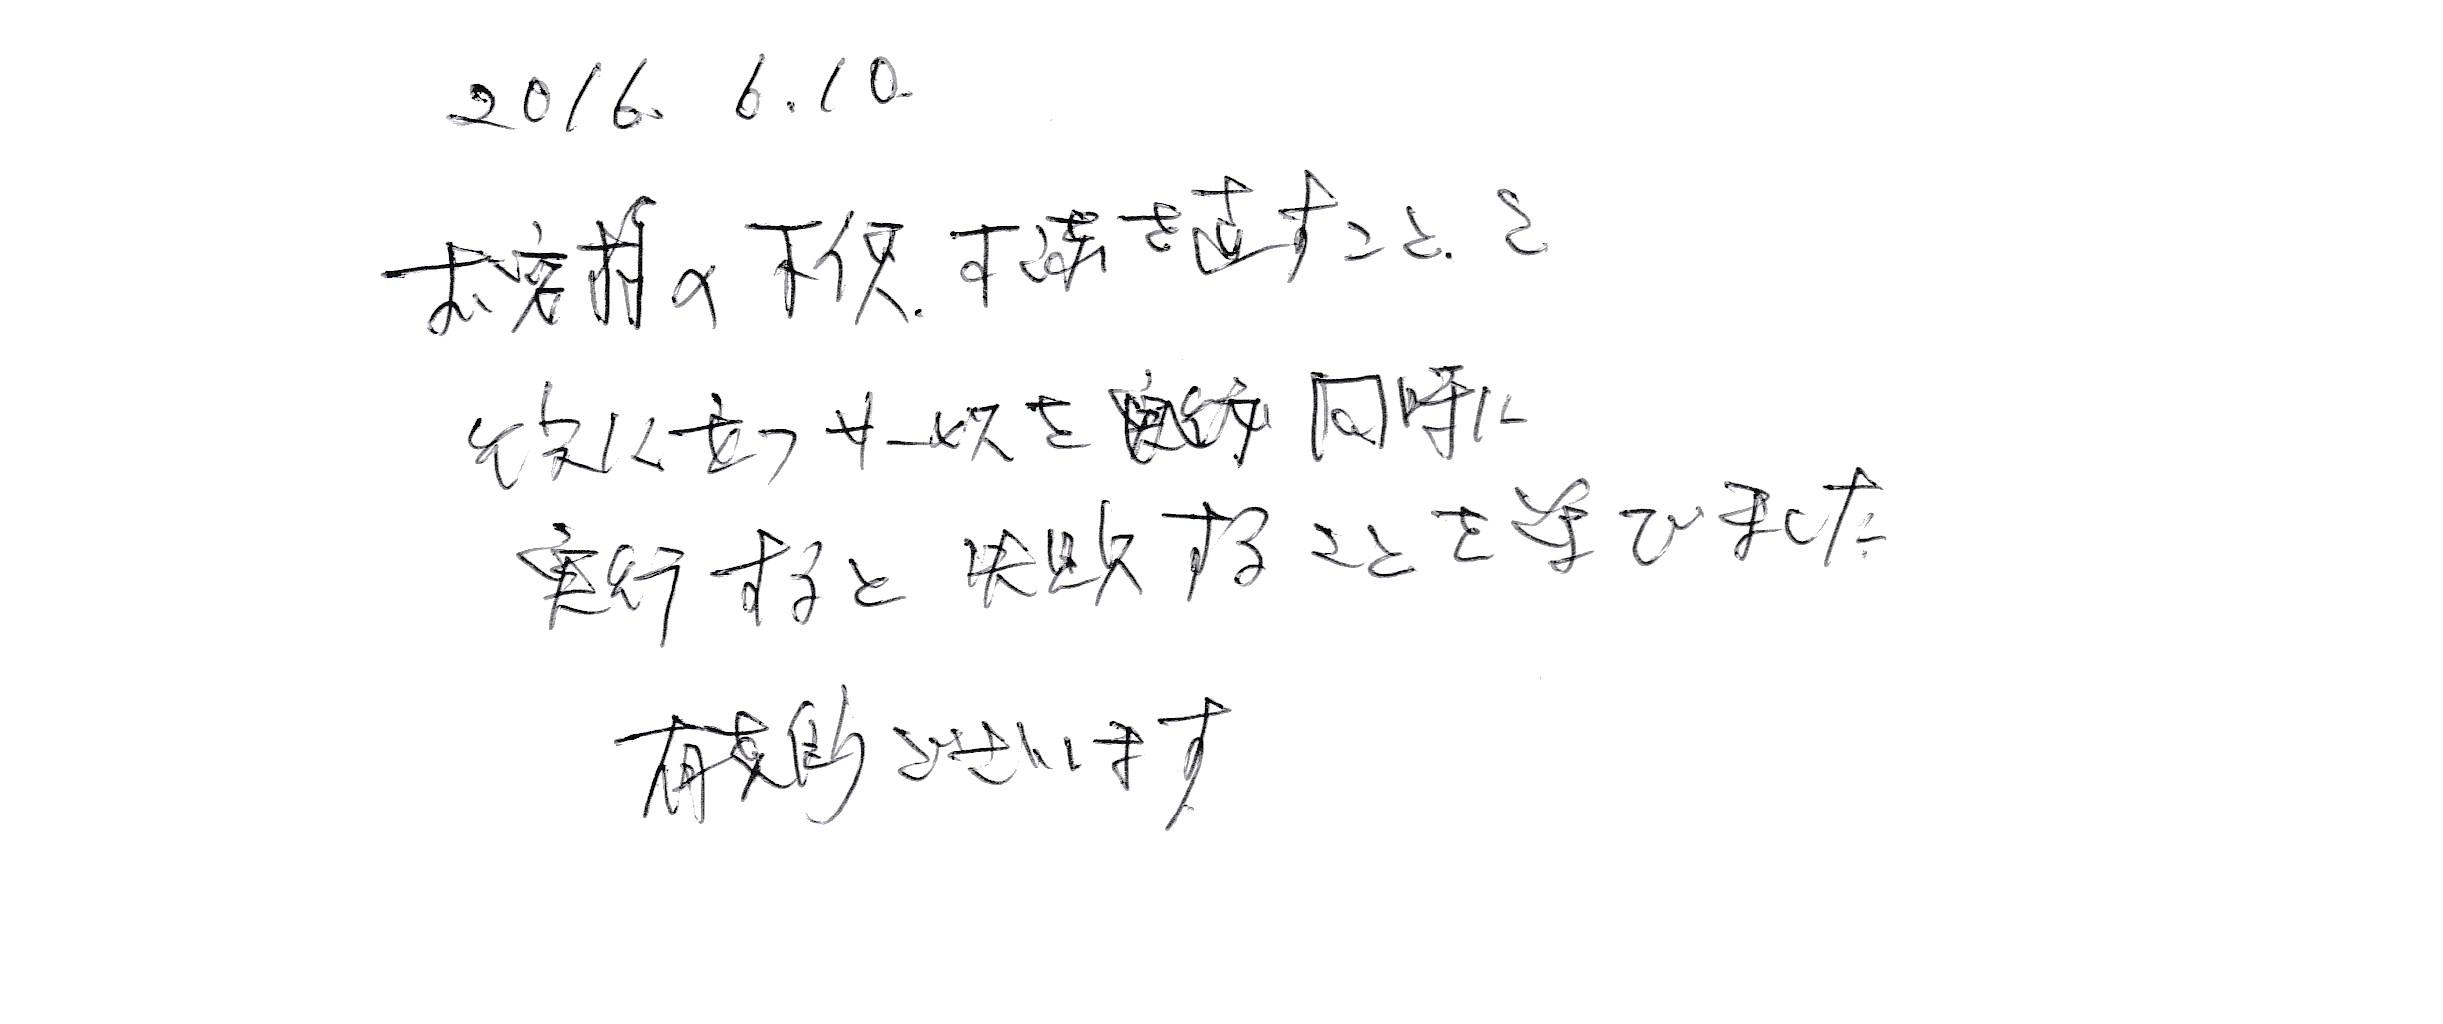 2016. 6.10
お客様の不便.不満を直すこと.と
役に立つサービスを 同時に
実行すると失敗することを学びました
有難うございます